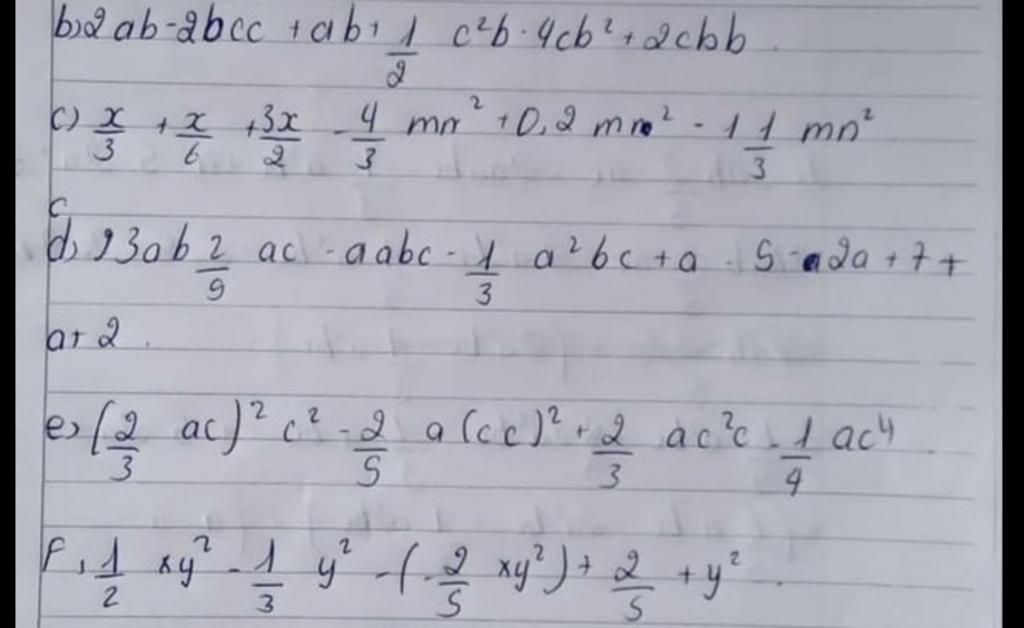 b) 2ab - 2bcc + ab + 1/2 c²b - 4cb² + 2cbb
c) x/3 + x/6 + 3x/2 - 4/3 mn² + 0,2 mn² - 1 1/3 mn²
c
d) 93ab 2/9 ac - aabc - 1/3 a²bc + a - 5 - 2a + 7 +
a + 2.
e) (2/3 ac)² c² - 2/5 a(cc)² + 2/3 ac²c - 1/4 ac⁴.
f, 1/2 xy² - 1/3 y² - (-2/5 xy²) + 2/5 + y².